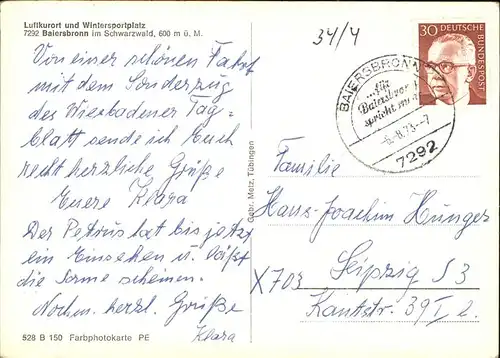 Luftkurort und Wintersportplatz
7292 Baiersbronn im Schwarzwald, 600 m ü. M.
Von einer schönen Fahrt
mit dem Sonderzug
des Wiesbadener Tag-
blatt sende ich Euch
recht herzliche Grüße
Euere Klara
Der Petrus hat bis jetzt
ein Einsehen u. läßt
die Sonne scheinen.
Nochm. herzl. Grüße
Klara
528 B 150 Farbphotokarte PE
Gebr. Metz, Tübingen
34/4
30 DEUTSCHE
BUNDESPOST
BAIERSBRONN
...für
Baiersbronn
spricht
-7
7292
Familie
Hans-Joachim Hunger
X703 Leipzig S3
Kantstr. 39 I